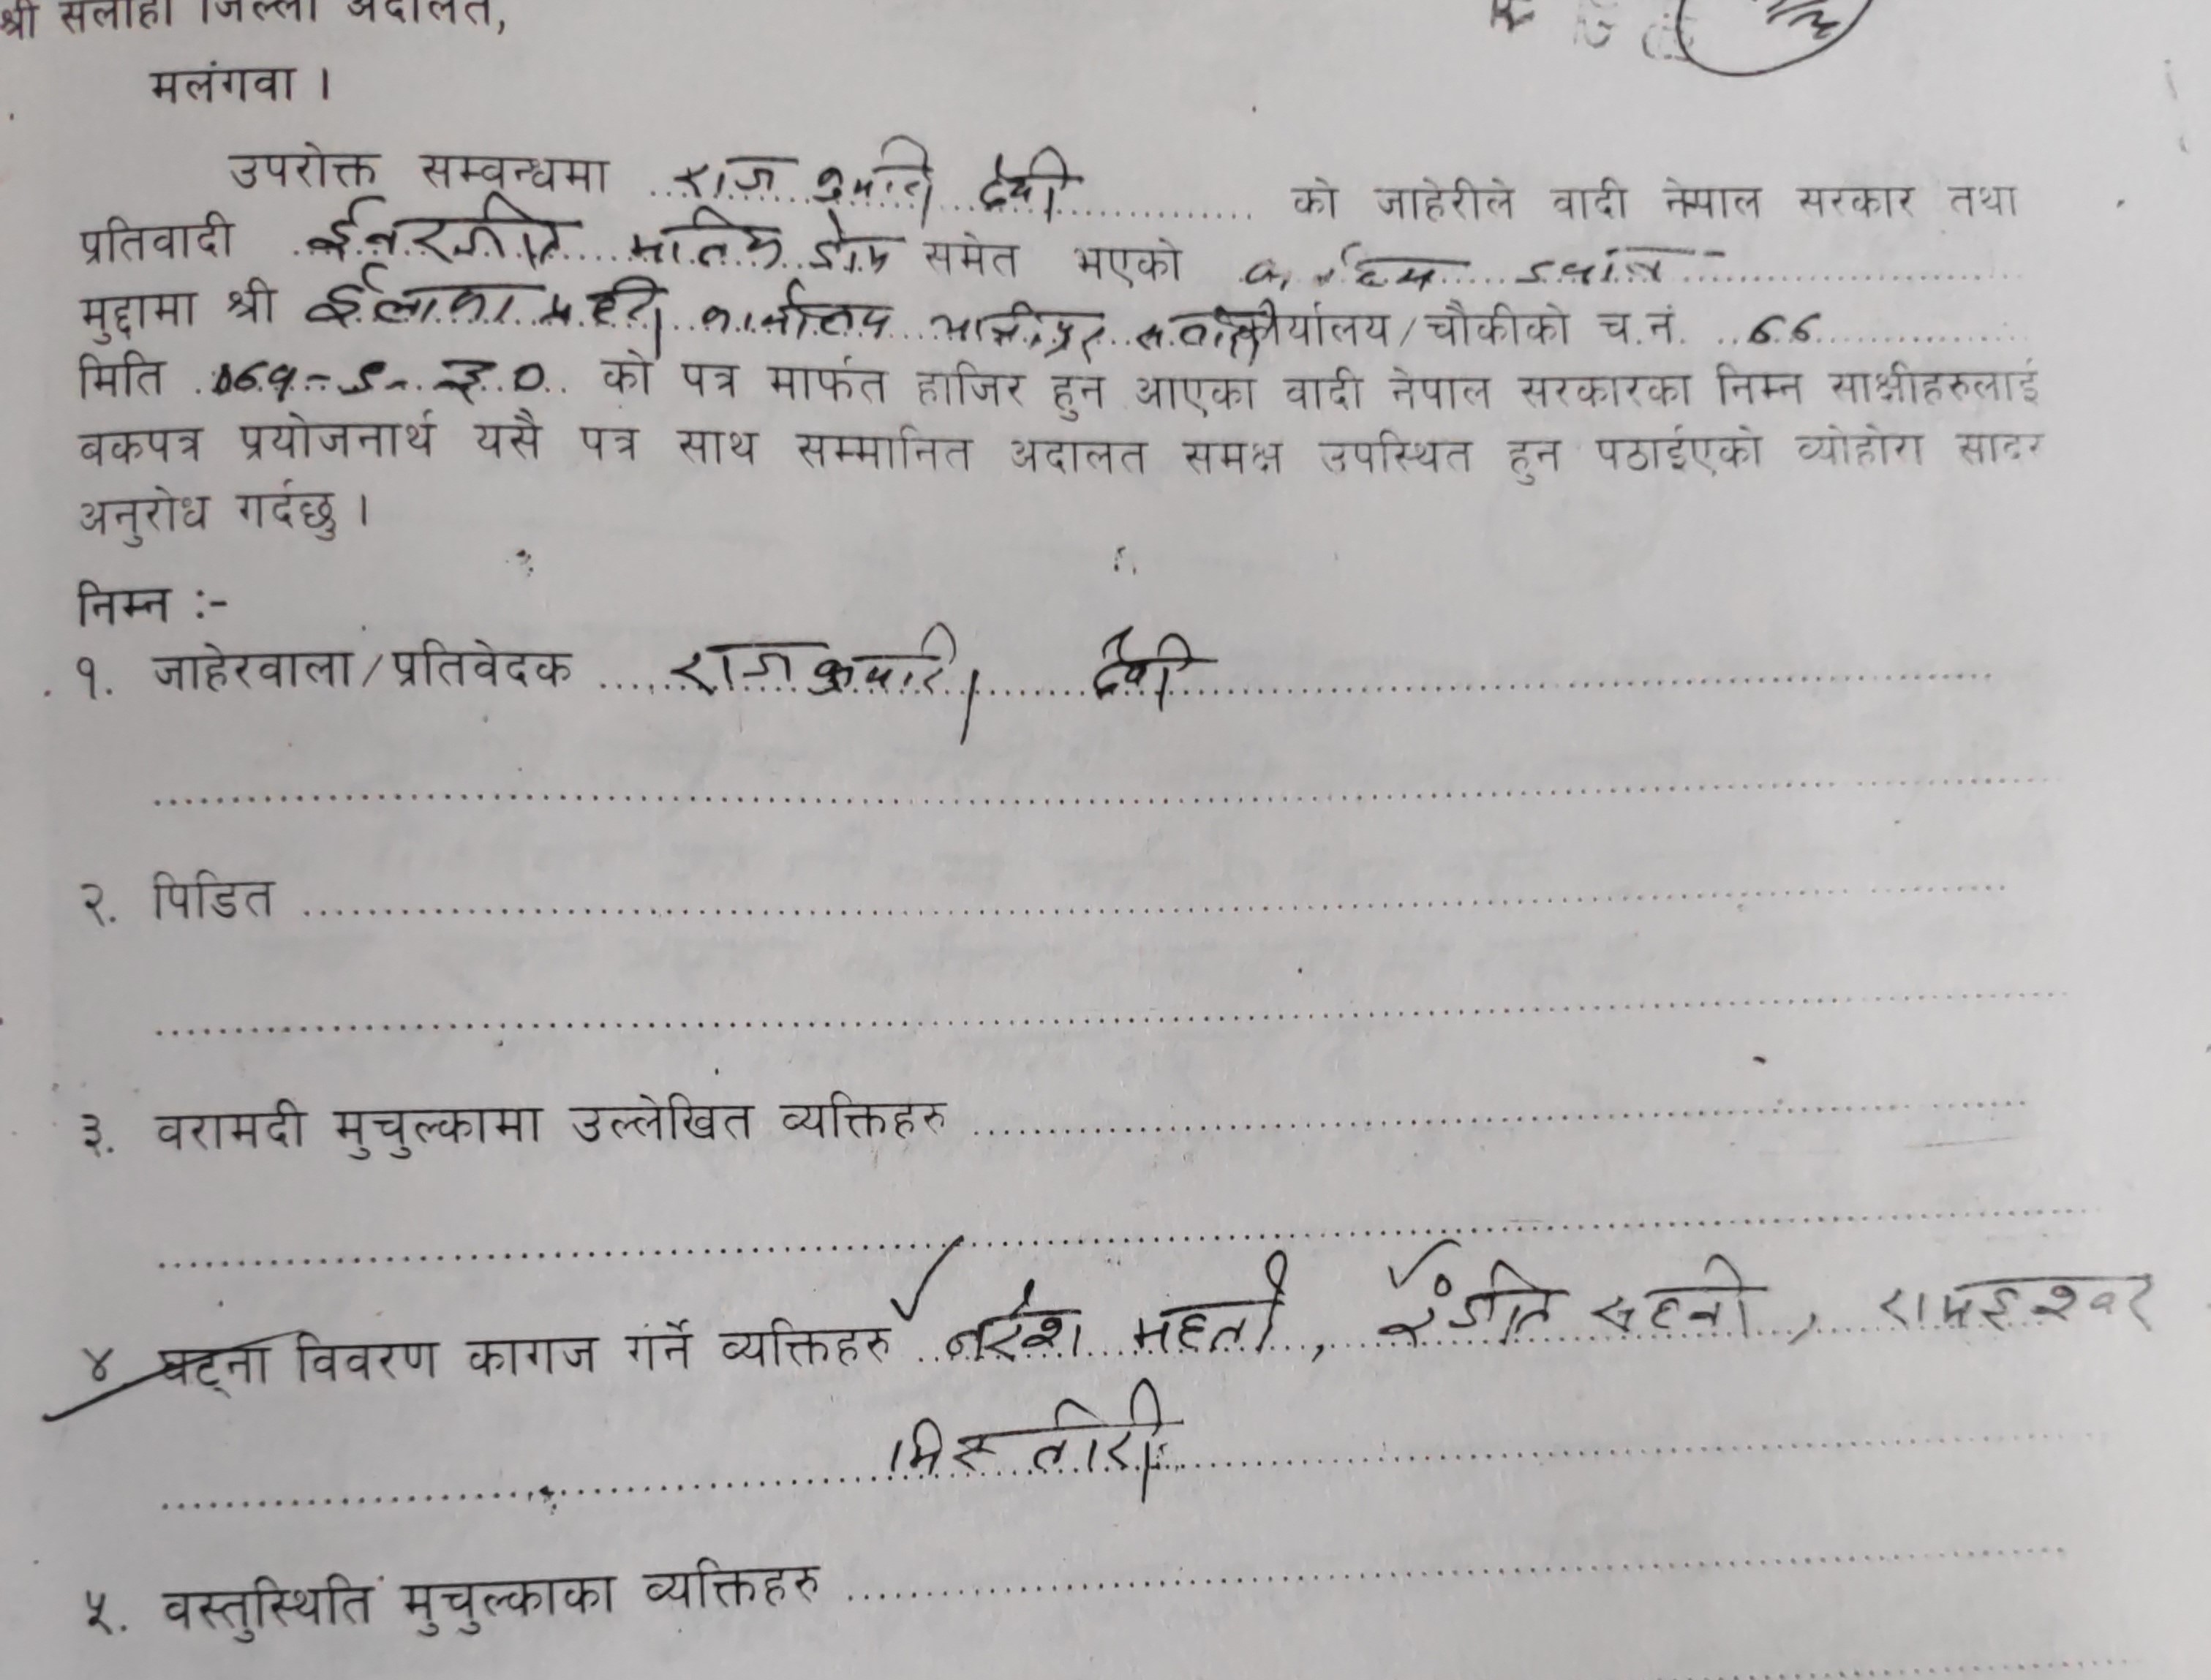 श्री सर्लाही जिल्ला अदालत,
मलंगवा ।
उपरोक्त सम्वन्धमा राज कुमारी देवी को जाहेरीले वादी नेपाल सरकार तथा
प्रतिवादी समेत भएको
मुद्दामा श्री ईलाका प्रहरी कार्यालय कार्यालय/चौकीको च.नं. ६६
मिति को पत्र मार्फत हाजिर हुन आएका वादी नेपाल सरकारका निम्न साक्षीहरुलाई
बकपत्र प्रयोजनार्थ यसै पत्र साथ सम्मानित अदालत समक्ष उपस्थित हुन पठाईएको व्योहोरा सादर
अनुरोध गर्दछु ।
निम्न :-
१. जाहेरवाला/प्रतिवेदक राजकुमारी देवी
२. पिडित
३. वरामदी मुचुल्कामा उल्लेखित व्यक्तिहरु
४ घट्ना विवरण कागज गर्ने व्यक्तिहरु नरेश महतो, सहनी, रामईश्वर
५. वस्तुस्थिति मुचुल्काका व्यक्तिहरु